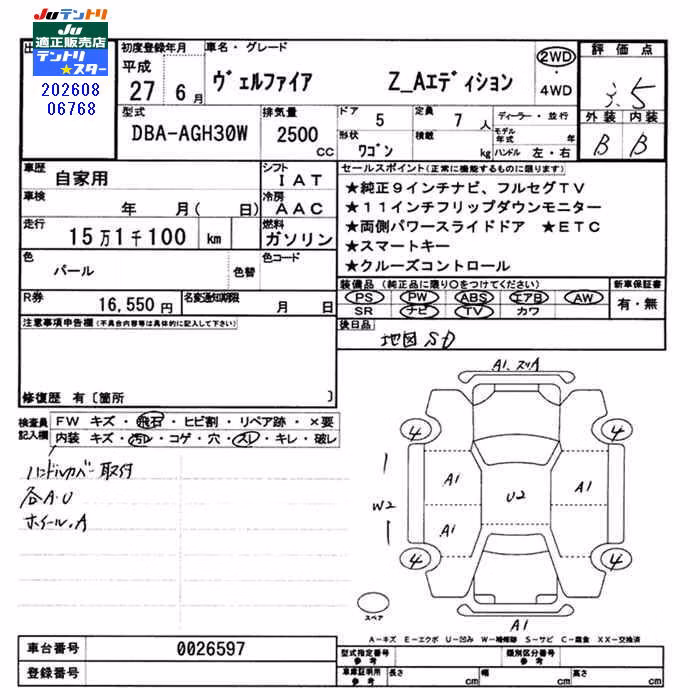 JUテントリ
JU
適正販売店
テントリ
★スター
202608
06768
初度登録年月
平成
27年 6月
車名・グレード
ヴェルファイア Z_Aエディション
2WD
・
4WD
評価点
3.5
外装 内装
B B
型式
DBA-AGH30W
排気量
2500 cc
ドア
5
定員
7人
形状
ワゴン
積載
kg
ディーラー・並行
モデル年式 年
ハンドル 左・右
車歴
自家用
シフト
IAT
車検
年 月( 日)
冷房
AAC
走行
15万1千100 km
燃料
ガソリン
色
パール
色替
色コード
R券
16,550円
名変通知期限
月 日
セールスポイント(正常に機能するものに限ります)
★純正9インチナビ、フルセグTV
★11インチフリップダウンモニター
★両側パワースライドドア ★ETC
★スマートキー
★クルーズコントロール
装備品(純正品に限り○をつけてください)
PS PW ABS エアB AW
SR ナビ TV カワ
新車保証書
有・無
後日品
地図SD
注意事項申告欄(不具合内容等は具体的に記入して下さい)
修復歴 有〔箇所 〕
検査員
記入欄
FW キズ・飛石・ヒビ割・リペア跡・×要
内装 キズ・汚レ・コゲ・穴・スレ・キレ・破レ
ハンドルカバー取付
各A.U
ホイール.A
A1、スリA
4
4
A1
A1
W2
U2
A1
4
4
A1
スペア
A-キズ E-エクボ U-凹み W-補修跡 S-サビ C-腐食 XX-交換済
車台番号
0026597
登録番号
型式指定番号
参考
類別区分番号
参考
車庫証明用
参考
長さ cm
幅 cm
高さ cm